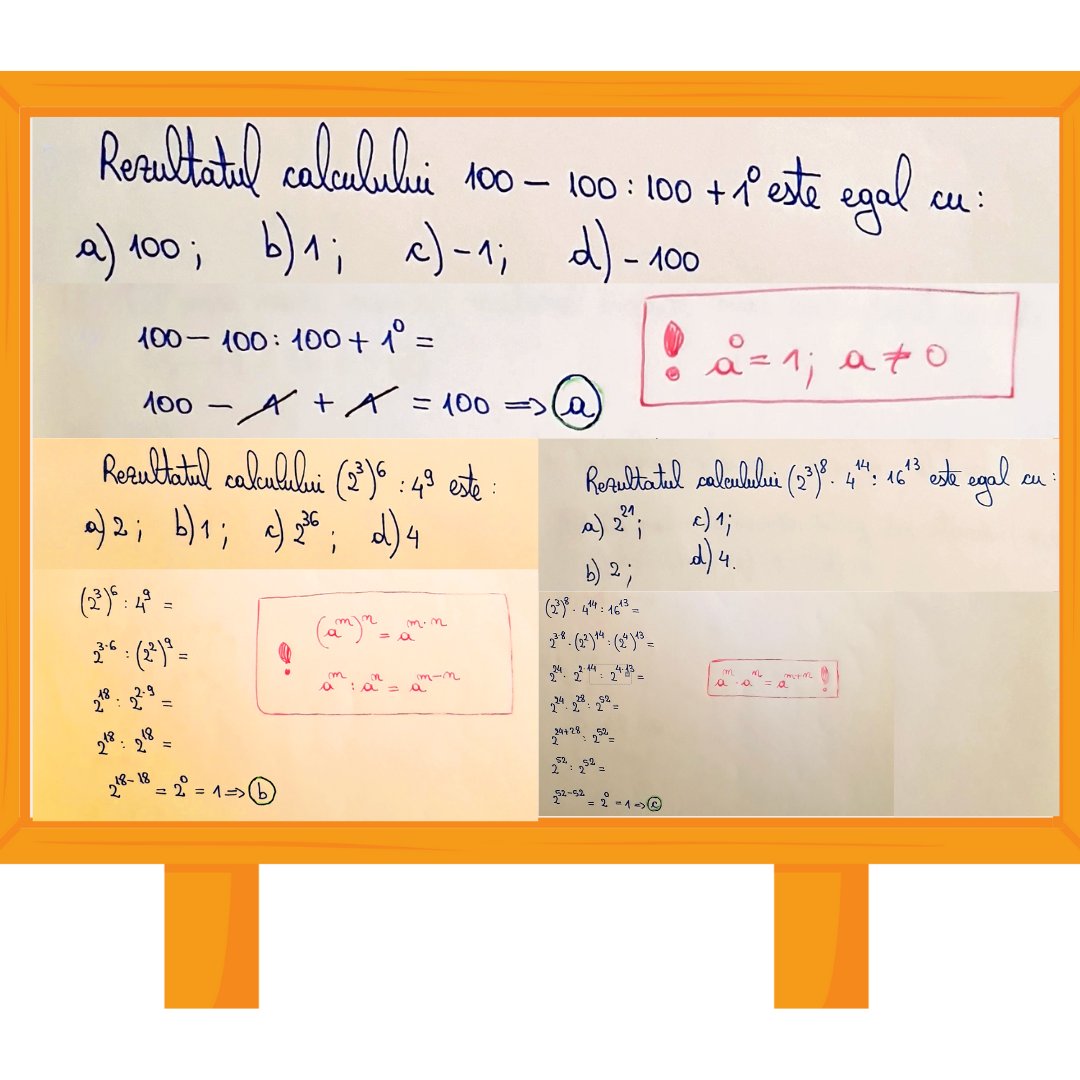 Rezultatul calculului 100 – 100 : 100 + 1⁰ este egal cu:
a) 100; b) 1; c) -1; d) -100
100 – 100 : 100 + 1⁰ =
100 – 1 + 1 = 100 => a
! a⁰ = 1; a ≠ 0
Rezultatul calculului (2³)⁶ : 4⁹ este :
a) 2; b) 1; c) 2³⁶; d) 4
(2³)⁶ : 4⁹ =
2³·⁶ : (2²)⁹ =
2¹⁸ : 2²·⁹ =
2¹⁸ : 2¹⁸ =
2¹⁸⁻¹⁸ = 2⁰ = 1 => b
! (aᵐ)ⁿ = aᵐ·ⁿ
aᵐ : aⁿ = aᵐ⁻ⁿ
Rezultatul calculului (2³)⁸ · 4¹⁴ : 16¹³ este egal cu :
a) 2²¹; c) 1;
b) 2; d) 4.
(2³)⁸ · 4¹⁴ : 16¹³ =
2³·⁸ · (2²)¹⁴ : (2⁴)¹³ =
2²⁴ · 2²·¹⁴ : 2⁴·¹³ =
2²⁴ · 2²⁸ : 2⁵² =
2²⁴⁺²⁸ : 2⁵² =
2⁵² : 2⁵² =
2⁵²⁻⁵² = 2⁰ = 1 => c
aᵐ · aⁿ = aᵐ⁺ⁿ !